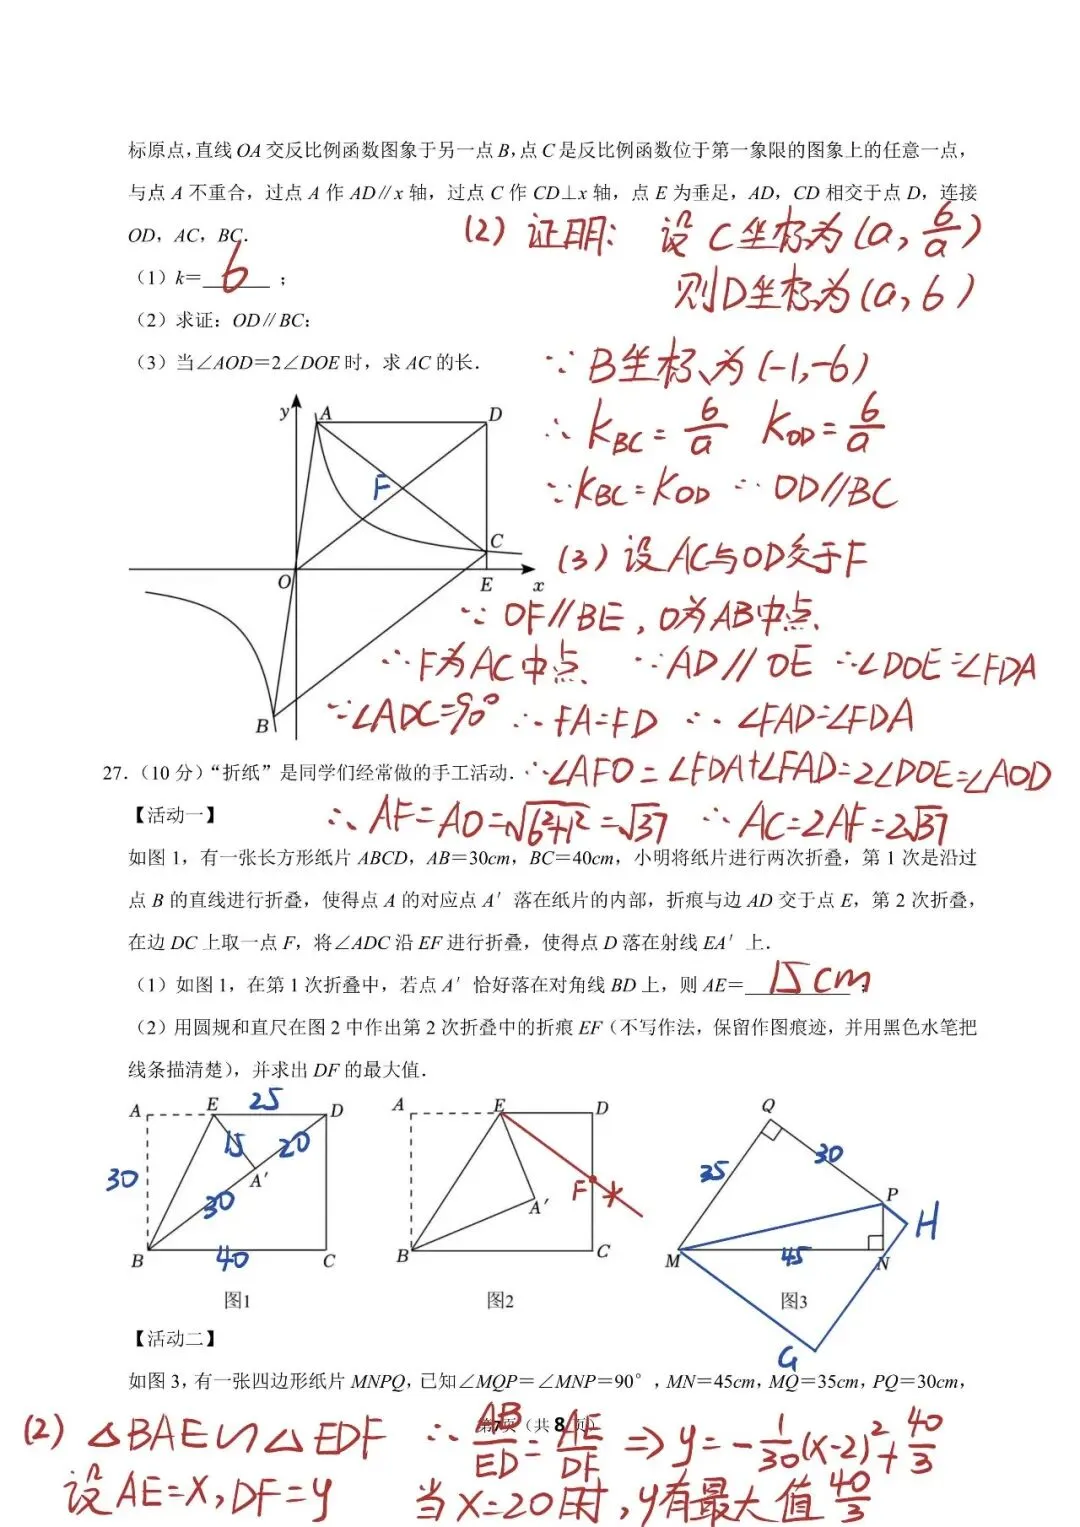 标原点，直线 OA 交反比例函数图象于另一点 B，点 C 是反比例函数位于第一象限的图象上的任意一点，
与点 A 不重合，过点 A 作 AD∥x 轴，过点 C 作 CD⊥x 轴，点 E 为垂足，AD，CD 相交于点 D，连接
OD，AC，BC．
(2) 证明： 设 C坐标为(a, 6/a)
（1）k＝ 6 ；
则D坐标为(a, 6)
（2）求证：OD∥BC：
（3）当∠AOD＝2∠DOE 时，求 AC 的长．
∵ B坐标为(-1,-6)
∴ KBC = 6/a KOD = 6/a
∵KBC=KOD ∴ OD∥BC
(3) 设AC与OD交于F
∵ OF∥BE, O为AB中点
∴F为AC中点 ∵AD∥OE ∴∠DOE=∠FDA
∵∠ADC=90° ∴FA=FD ∴ ∠FAD=∠FDA
y A D F C O E x B
27．（10 分）“折纸”是同学们经常做的手工活动．
∴∠AFO=∠FDA+∠FAD=2∠DOE=∠AOD
【活动一】
∴ AF=AO=√6²+1²=√37 ∴ AC=2AF=2√37
如图 1，有一张长方形纸片 ABCD，AB＝30cm，BC＝40cm，小明将纸片进行两次折叠，第 1 次是沿过
点 B 的直线进行折叠，使得点 A 的对应点 A′ 落在纸片的内部，折痕与边 AD 交于点 E，第 2 次折叠，
在边 DC 上取一点 F，将∠ADC 沿 EF 进行折叠，使得点 D 落在射线 EA′ 上．
（1）如图 1，在第 1 次折叠中，若点 A′ 恰好落在对角线 BD 上，则 AE＝ 15cm ；
（2）用圆规和直尺在图 2 中作出第 2 次折叠中的折痕 EF（不写作法，保留作图痕迹，并用黑色水笔把
线条描清楚），并求出 DF 的最大值．
A E 25 D 15 20 A′ 30 30 B 40 C
A E D F A′ B C
Q 35 30 P H M 45 N G
图1 图2 图3
【活动二】
如图 3，有一张四边形纸片 MNPQ，已知∠MQP＝∠MNP＝90°，MN＝45cm，MQ＝35cm，PQ＝30cm，
第7页（共 8 页）
(2) △BAE∽△EDF ∴ AB/ED = AE/DF ⇒ y=-1/30(x-2)²+40/3
设AE=x, DF=y 当x=20时, y有最大值 40/3